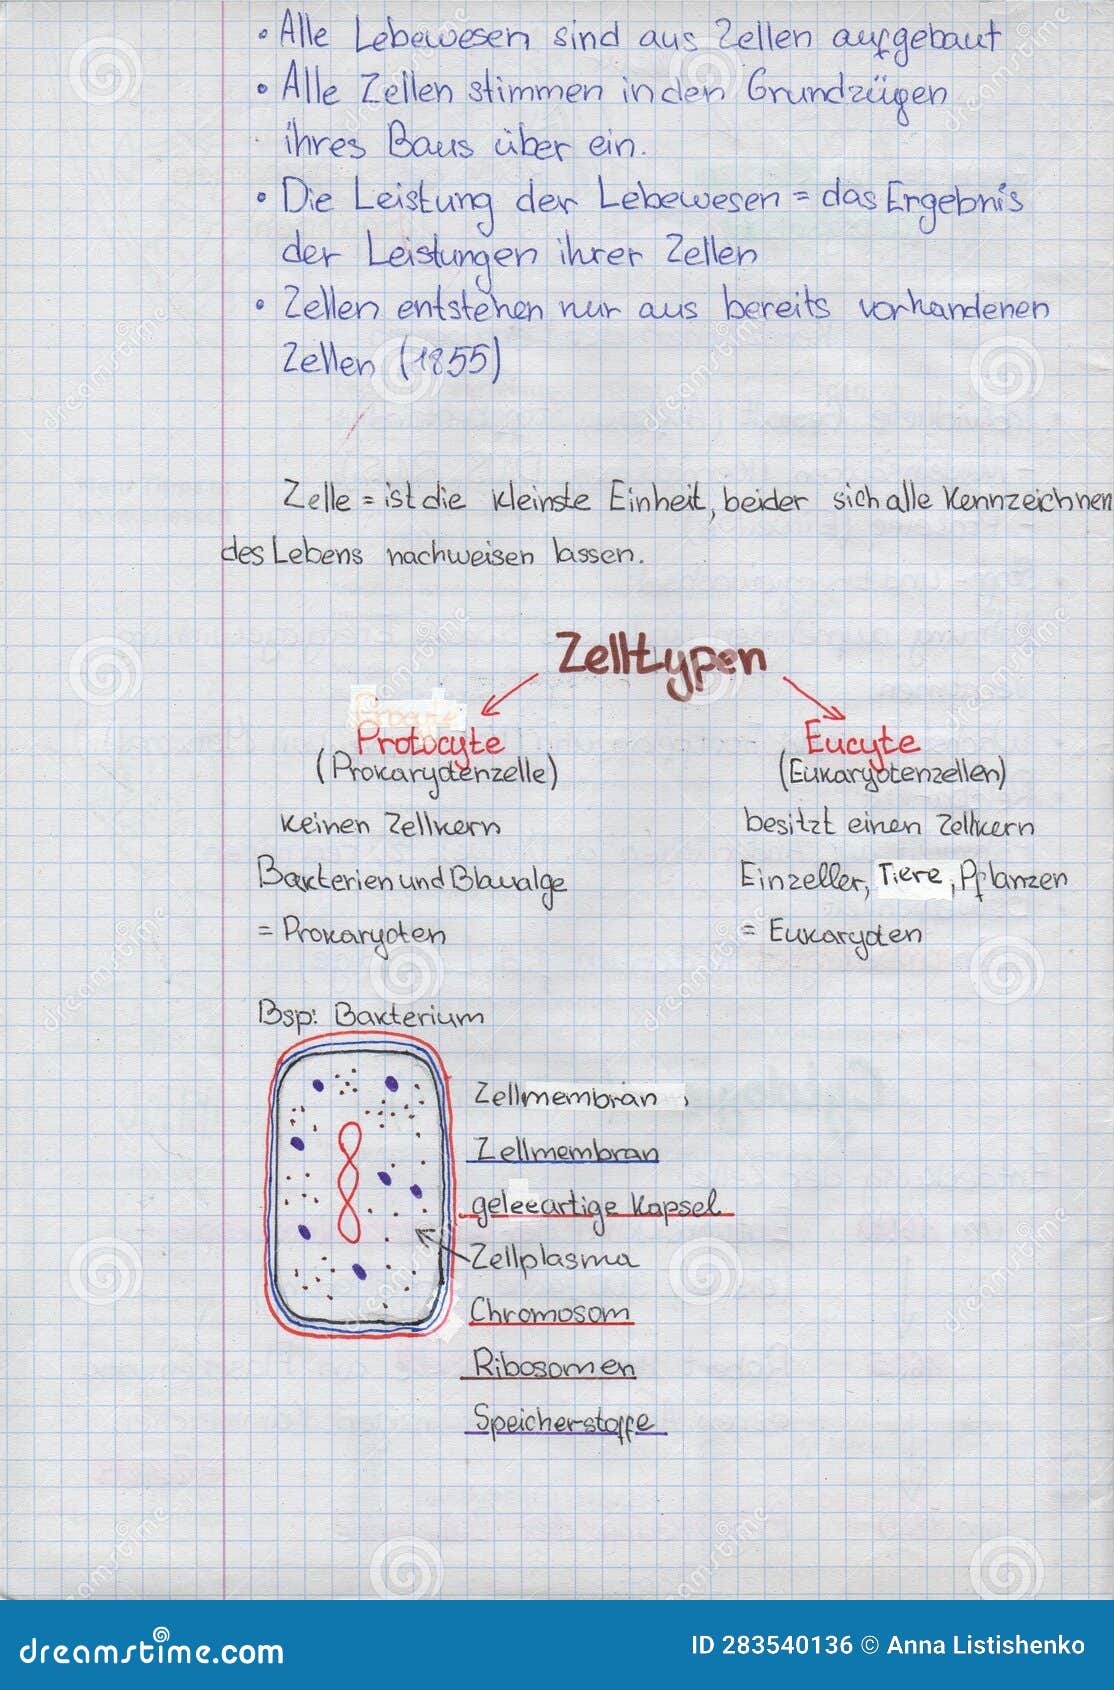 • Alle Lebewesen sind aus Zellen aufgebaut
• Alle Zellen stimmen in den Grundzügen
ihres Baus über ein.
• Die Leistung der Lebewesen = das Ergebnis
der Leistungen ihrer Zellen
• Zellen entstehen nur aus bereits vorhandenen
Zellen (1855)
Zelle = ist die kleinste Einheit, bei der sich alle Kennzeichnen
des Lebens nachweisen lassen.
Zelltypen
Protocyte
(Prokaryotenzelle)
keinen Zellkern
Bakterien und Blaualge
= Prokaryoten
Eucyte
(Eukaryotenzellen)
besitzt einen Zellkern
Einzeller, Tiere, Pflanzen
= Eukaryoten
Bsp: Bakterium
Zellmembran,
Zellmembran
geleeartige Kapsel
Zellplasma
Chromosom
Ribosomen
Speicherstoffe
dreamstime.com
ID 283540136 © Anna Listishenko